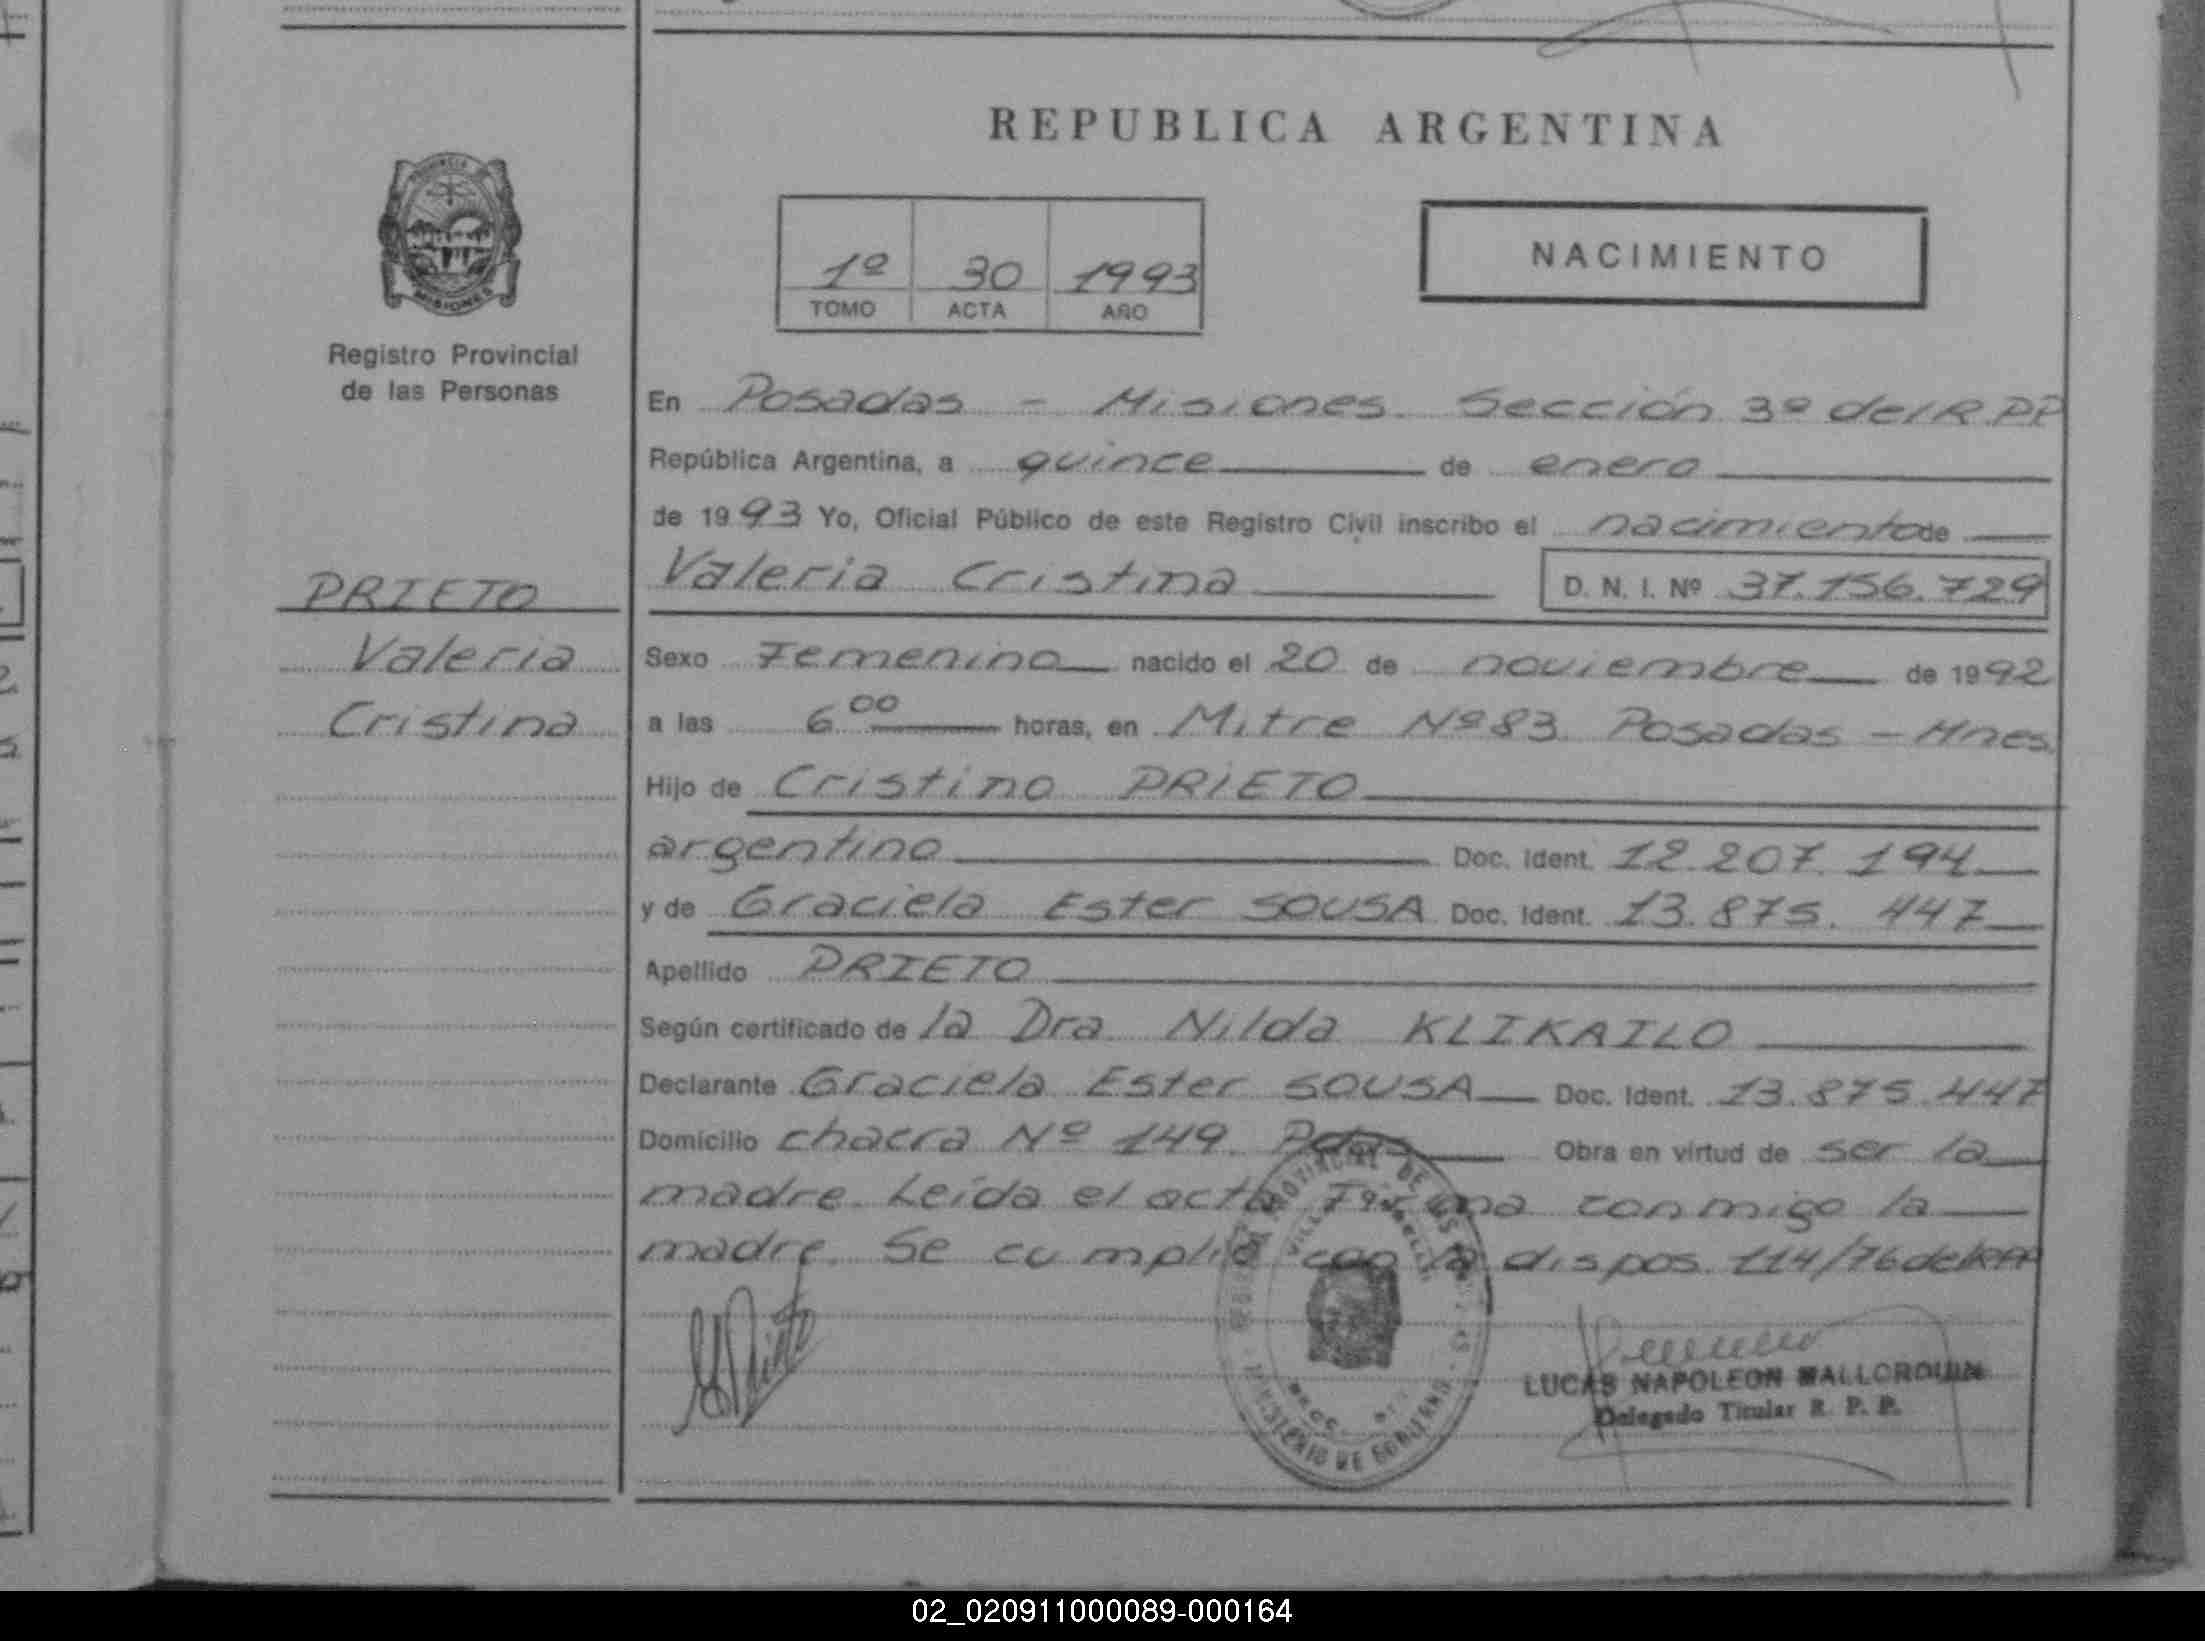 REPUBLICA ARGENTINA
PROVINCIA
MISIONES
Registro Provincial
de las Personas
1º 30 1993
TOMO ACTA AÑO
NACIMIENTO
En Posadas - Misiones. Sección 3º del R.PP
República Argentina, a quince de enero
de 1993 Yo, Oficial Público de este Registro Civil inscribo el nacimiento de
Valeria Cristina D. N. I. Nº 37.156.729
PRIETO
Valeria
Cristina
Sexo Femenino nacido el 20 de noviembre de 1992
a las 6.00 horas, en Mitre Nº 83 Posadas - Mnes.
Hijo de Cristino PRIETO
argentino Doc. Ident. 12.207.194
y de Graciela Ester SOUSA Doc. Ident. 13.875.447
Apellido PRIETO
Según certificado de la Dra Nilda KLIKAILO
Declarante Graciela Ester SOUSA Doc. Ident. 13.875.447
Domicilio chacra Nº 149. Pdas Obra en virtud de ser la
madre. Leída el acta Firma conmigo la
madre. Se cumplió con la dispos. 114/76 del RPP
PROVINCIAL DE LAS
MINISTERIO DE GOBIERNO
LUCAS NAPOLEON MALLORQUIN
Delegado Titular R. P. P.
02_020911000089-000164